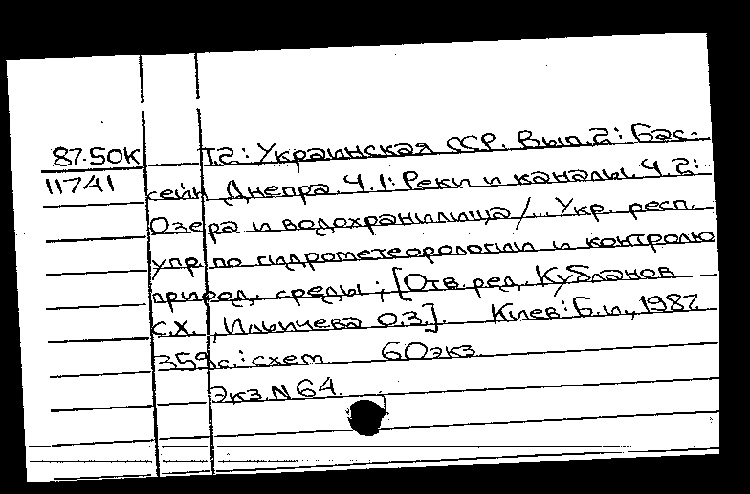 87.50К Т.2: Украинская ССР. Вып.2: Бас-
11741 сейн Днепра. Ч.1: Реки и каналы. Ч.2:
Озера и водохранилища /... Укр. респ.
упр. по гидрометеорологии и контролю
природ. среды ; [Отв. ред. Кубланов
С.Х., Ильичева О.З.]. Киев: Б.и., 1987
359 с.: схем 60экз.
Экз. N 64.